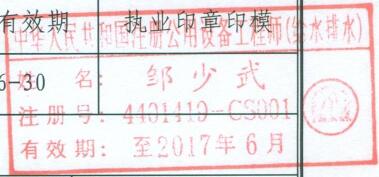 有效期 执业印章印模
中华人民共和国注册公用设备工程师(给水排水)
6-30
姓 名: 邹少武
注册号: 4401419-CS001
有效期: 至2017年6月